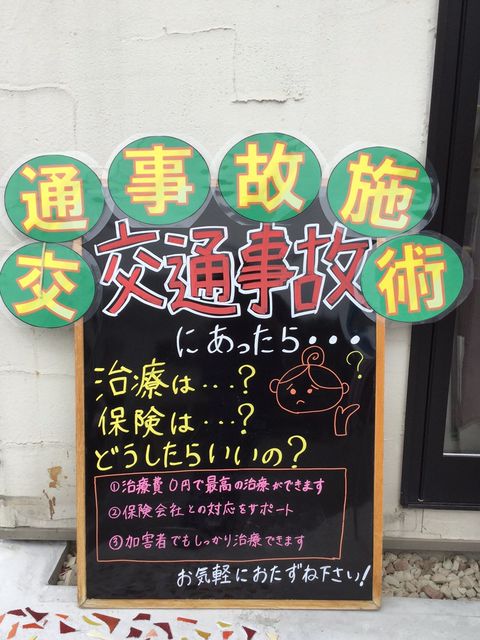 交通事故施術
交通事故
にあったら・・・
治療は・・・?
?
保険は・・・?
どうしたらいいの?
①治療費0円で最高の治療ができます
②保険会社との対応をサポート
③加害者でもしっかり治療できます
お気軽におたずね下さい!